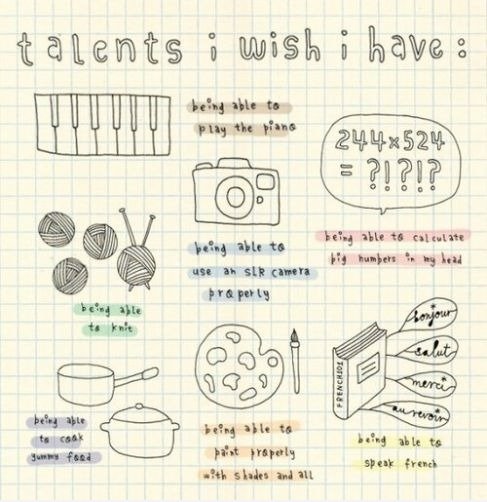 talents i wish i have:
being able to
play the piano
244x524
= ?!?!?
being able to calculate
big numbers in my head
being able to
use an SLR camera
properly
being able
to knit
bonjour
salut
merci
au revoir
FRENCH101
being able
to cook
yummy food
being able to
paint properly
with shades and all
being able to
speak french